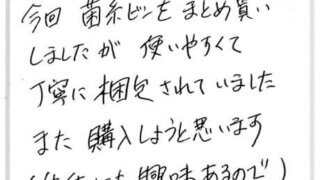 今回 菌糸ビンをまとめ買い
しましたが 使いやすくて
丁寧に梱包されていました
また購入しようと思います
も興味あるので)